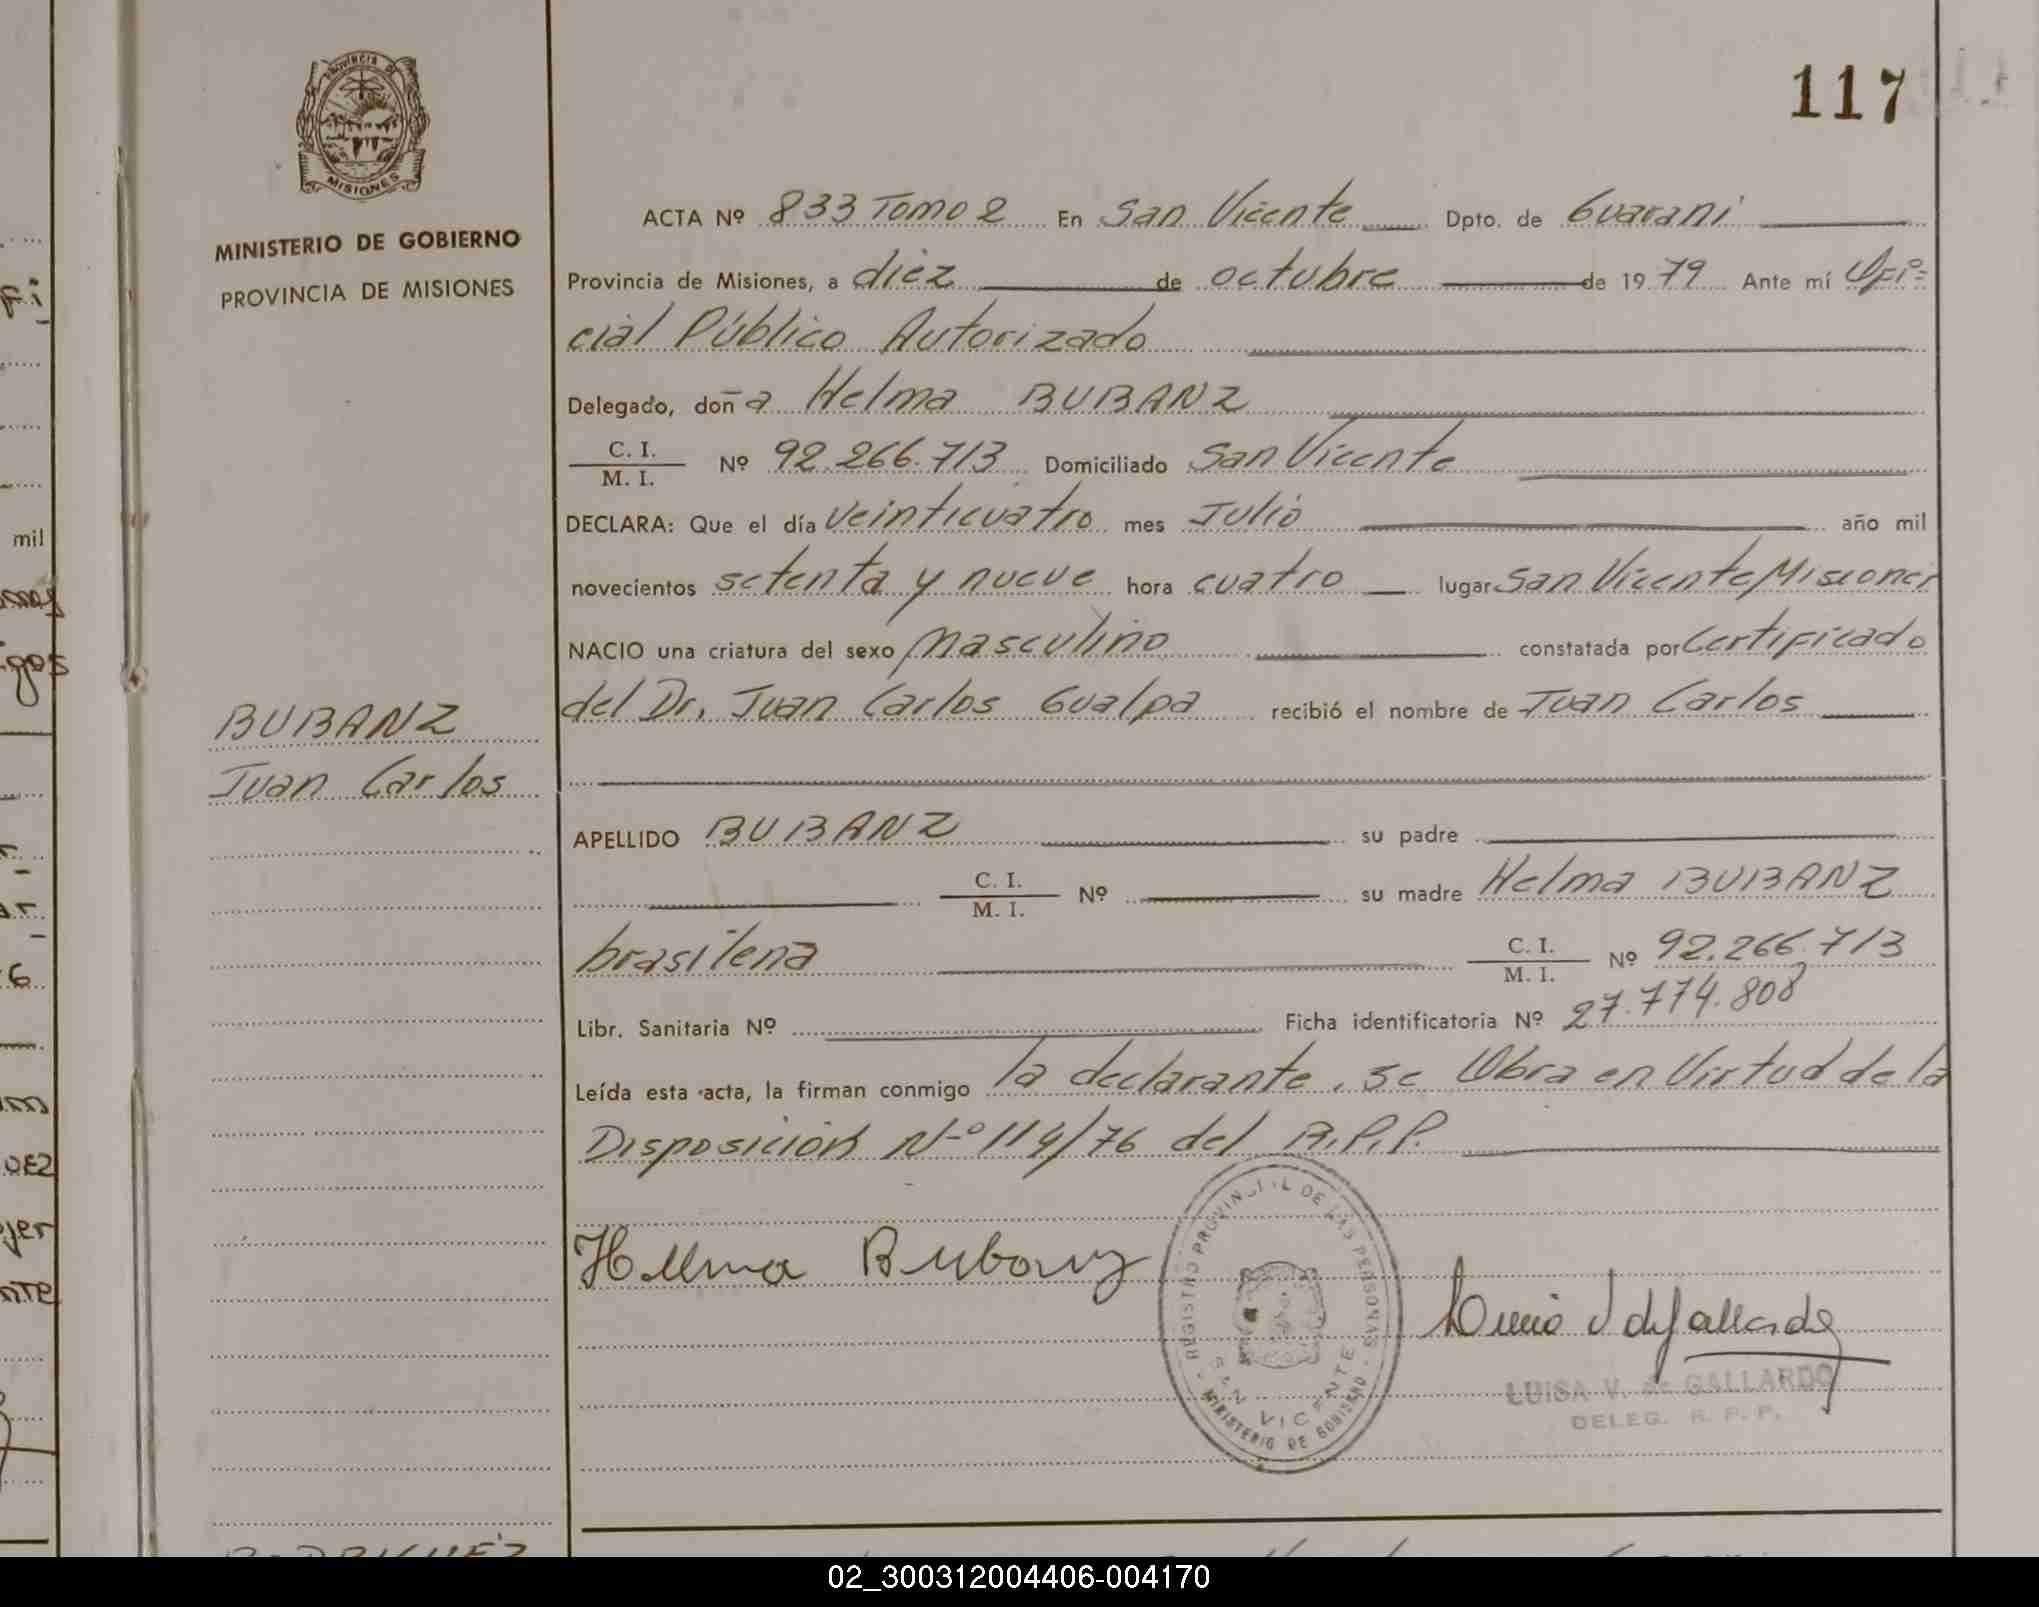 117
PROVINCIA DE
MISIONES
MINISTERIO DE GOBIERNO
PROVINCIA DE MISIONES
ACTA Nº 833 Tomo 2 En San Vicente Dpto. de Guarani
Provincia de Misiones, a diez de octubre de 1979 Ante mí Ofi=
cial Público Autorizado
Delegado, doña Helma BUBANZ
C. I.
M. I. Nº 92.266.713 Domiciliado San Vicente
DECLARA: Que el día veinticuatro mes Julio año mil
novecientos setenta y nueve hora cuatro lugar San Vicente Misiones
NACIO una criatura del sexo Masculino constatada por Certificado
del Dr. Juan Carlos Gualpa recibió el nombre de Juan Carlos
BUBANZ
Juan Carlos
APELLIDO BUBANZ su padre
C. I.
M. I. Nº su madre Helma BUBANZ
brasilena C. I.
M. I. Nº 92.266.713
Libr. Sanitaria Nº Ficha identificatoria Nº 27.774.808
Leída esta acta, la firman conmigo la declarante, se Obra en Virtud de la
Disposición Nº 114/76 del R.P.P.
Helma Bubanz
REGISTRO PROVINCIAL DE LAS PERSONAS
SAN VICENTE
MINISTERIO DE GOBIERNO
LUISA V. de GALLARDO
DELEG. R. P. P.
RODRIGUEZ
02_300312004406-004170